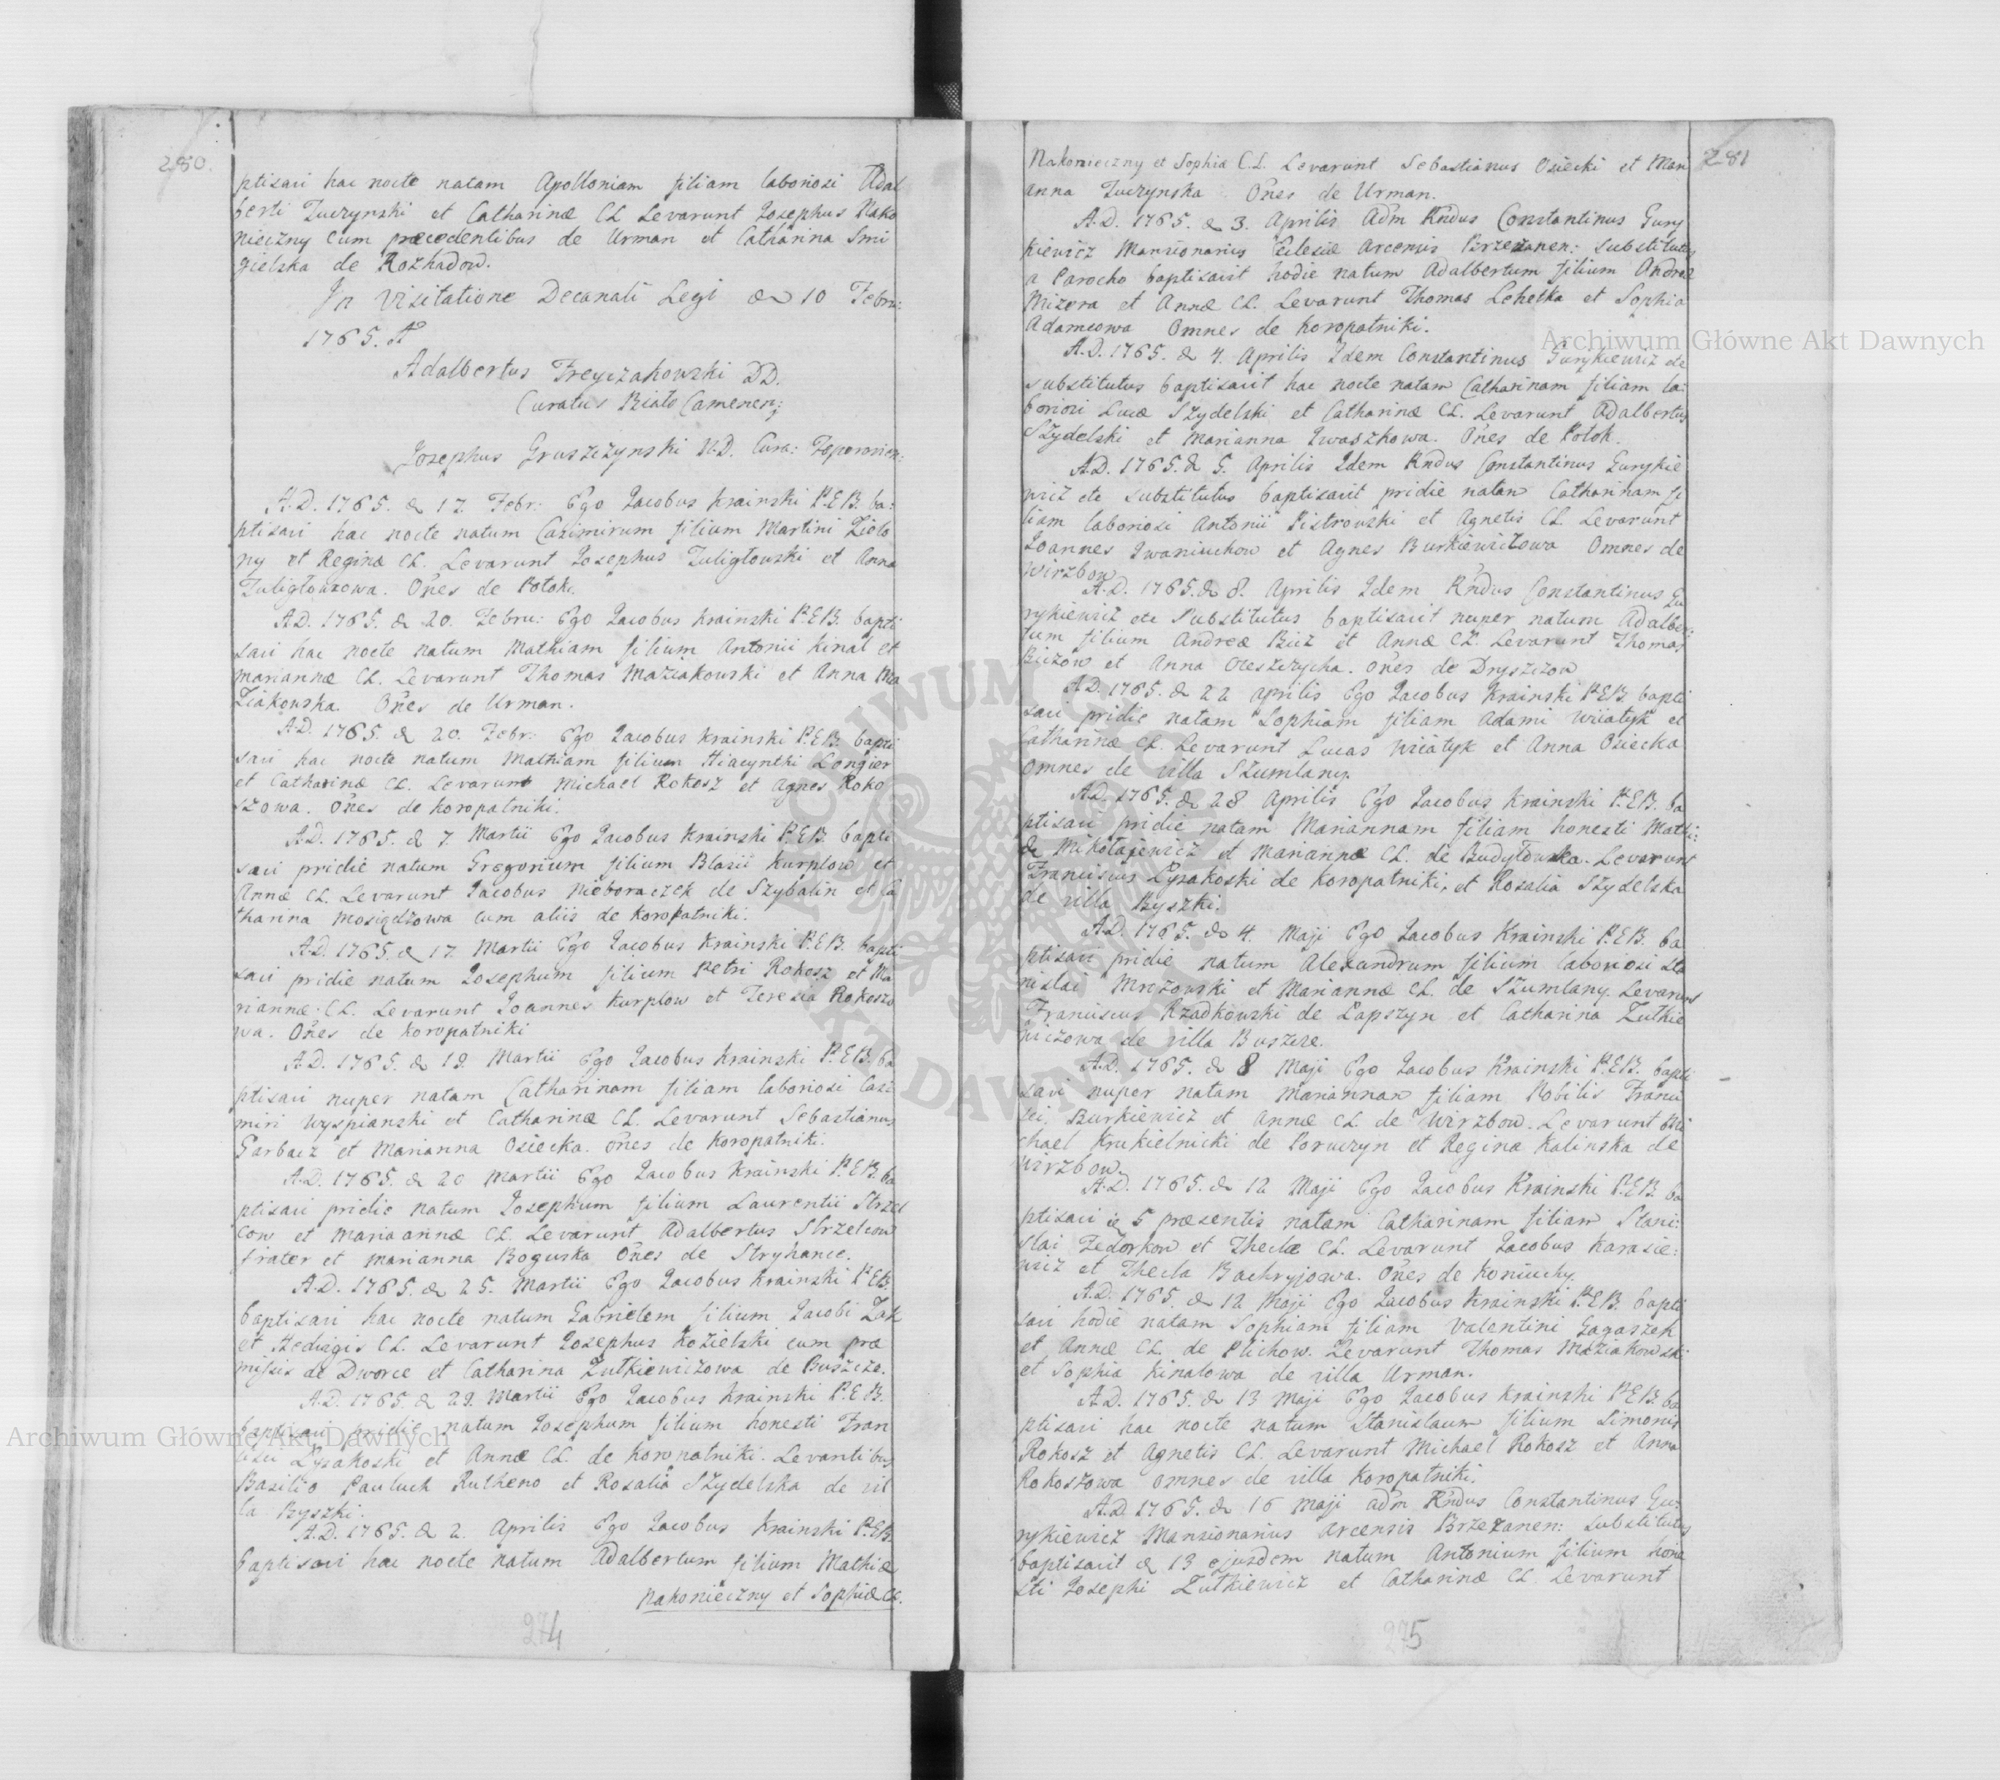 280.
ptisavi hac nocte natam Apolloniam filiam laboriosi Adal
berti Zuczynski et Catharinæ CL Levarunt Josephus Nako
nieczny cum præcedentibus de Urman et Catharina Smi
gielska de Rozhadow.
In Visitatione Decanali Legi die 10 Febru:
1765. A
Adalbertus Freyczakowski DD.
Curatus Biało Camenen;
Josephus Gruszczynski V.D. Cura: Toporovien:
A.D. 1765. d 17 Febr: Ego Jacobus Krainski P.E.B. ba:
ptisavi hac nocte natum Casimirum filium Martini Ziolo
ny et Reginæ CL. Levarunt Josephus Zuligłowski et Anna
Zuligłowszowa. Oñes de Potok.
A.D. 1765. d 20. Febru: Ego Jacobus Krainski P.E.B. bapti
savi hac nocte natum Mathiam filium Antonii Kinal et
Mariannæ CL. Levarunt Thomas Maziakowski et Anna Ma
ziakowska. Oñes de Urman.
A.D. 1765. d 20. Febr: Ego Jacobus Krainski P.E.B. bapti
savi hac nocte natum Mathiam filium Hiacynthi Longier
et Catharinæ CL. Levarunt Michael Rokosz et Agnes Roko
szowa. Oñes de Koropatniki.
A.D. 1765. d 7 Martii Ego Jacobus Krainski P.E.B. bapti
savi pridie natum Gregorium filium Blasii Kurplow et
Annæ CL. Levarunt Jacobus Nieboraczek de Szybalin et Ca
tharina Mosiądzowa cum aliis de Koropatniki.
A.D. 1765. d 17 Martii Ego Jacobus Krainski P.E.B. bapti
savi pridie natum Josephum filium Petri Rokosz et Ma
riannæ CL. Levarunt Joannes Kurplow et Teresia Rokoszo
wa. Oñes de Koropatniki
A.D. 1765. d 19. Martii Ego Jacobus Krainski P.E.B. ba
ptisavi nuper natam Catharinam filiam laboriosi Casi
miri Wyspianski et Catharinæ CL. Levarunt Sebastianus
Garbacz et Marianna Osiecka. Oñes de Koropatniki.
A.D. 1765. d 20 Martii Ego Jacobus Krainski P.E.B. ba
ptisavi pridie natum Josephum filium Laurentii Strzel
cow et Mariaannæ CL. Levarunt Adalbertus Strzelcow
frater et Marianna Boguska Oñes de Stryhance.
A.D. 1765. d 25. Martii Ego Jacobus Krainski P.E.B.
baptisavi hac nocte natum Gabrielem filium Jacobi Zak
et Hedvigis CL. Levarunt Josephus Kozielski cum præ
missis de Dworce et Catharina Zutkiewiczowa de Buszcze.
A.D. 1765. d 29. Martii Ego Jacobus Krainski P.E.B.
baptisavi pridie natum Josephum filium honesti Fran
cisci Lysakoski et Annæ CL. de Koropatniki. Levantibus
Basilio Pauluch Rutheno et Rosalia Szydelska de vil
la Byszki.
A.D. 1765. d 2. Aprilis Ego Jacobus Krainski P.E.B.
baptisavi hac nocte natum Adalbertum filium Mathiæ
Nakonieczny et Sophiæ CL.
274
281
Nakonieczny et Sophiæ C.L. Levarunt Sebastianus Osiecki et Mari
anna Zuczynska. Oñes de Urman.
A.D. 1765. d 3. Aprilis Adm Rndus Constantinus Gury
kiewicz Mansionarius Eclesiæ Arcensis Brzezanen: substitutus
a Parocho baptisavit hodie natum Adalbertum filium Andreæ
Mizera et Annæ CL. Levarunt Thomas Lehetka et Sophia
Adamcowa Omnes de Koropatniki.
A.D. 1765. d 4. Aprilis Idem Constantinus Gurykiewicz etc
substitutus baptisavit hac nocte natam Catharinam filiam la:
boriosi Lucæ Szydelski et Catharinæ CL. Levarunt Adalbertus
Szydelski et Marianna Iwaszkowa. Oñes de Potok.
A.D. 1765. d 5. Aprilis Idem Rndus Constantinus Gurykie
wicz etc substitutus baptisavit pridie natam Catharinam fi
liam laboriosi Antonii Pistrowski et Agnetis CL. Levarunt
Joannes Iwaniuchow et Agnes Burkiewiczowa Omnes de
Wirzbow.
A.D. 1765. d 8. Aprilis Idem Rndus Constantinus Gu
rykiewicz etc Substitutus baptisavit nuper natum Adalber:
tum filium Andreæ Bicz et Annæ CL. Levarunt Thomas
Biczow et Anna Oleszczycha. Oñes de Dryszczow
A.D. 1765. d 22 Aprilis Ego Jacobus Krainski P.E.B. bapti
savi pridie natam Sophiam filiam Adami Wiiatyk et
Catharinæ CL. Levarunt Lucas Wiiatyk et Anna Osiecka
Omnes de villa Szumlany.
A.D. 1765. d 28 Aprilis Ego Jacobus Krainski P.E.B. ba
ptisavi pridie natam Mariannam filiam honesti Mathi:
æ Mikołajewicz et Mariannæ CL. de Budyłowka. Levarunt
Franciscus Lysakoski de Koropatniki, et Rosalia Szydelska
de villa Byszki.
A.D. 1765. d 4. Maji Ego Jacobus Krainski P.E.B. ba
ptisavi pridie natum Alexandrum filium laboriosi Sta
nislai Mrozowski et Mariannæ CL. de Szumlany. Levarunt
Franciscus Rzadkowski de Łapszyn et Catharina Zutkie
wiczowa de villa Buszcze.
A.D. 1765. d 8 Maji Ego Jacobus Krainski P.E.B. bapti
savi nuper natam Mariannam filiam Nobilis Franci
sci Burkiewicz et Annæ CL. de Wirzbow. Levarunt Mi
chael Krukielnicki de Poruczyn et Regina Kalinska de
Wirzbow.
A.D. 1765. d 12 Maji Ego Jacobus Krainski P.E.B. ba
ptisavi d 5 præsentis natam Catharinam filiam Stani:
slai Fedorkow et Theclæ CL. Levarunt Jacobus Karasie:
wicz et Thecla Bachryjowa. Oñes de Koniuchy.
A.D. 1765. d 12 Maji Ego Jacobus Krainski P.E.B. bapti
savi hodie natam Sophiam filiam Valentini Gagaszek
et Annæ CL. de Plichow. Levarunt Thomas Maziakowski
et Sophia Kinalowa de villa Urman.
A.D. 1765. d 13 Maji Ego Jacobus Krainski P.E.B. ba
ptisavi hac nocte natum Stanislaum filium Simonis
Rokosz et Agnetis CL. Levarunt Michael Rokosz et Anna
Rokoszowa Omnes de villa Koropatniki.
A.D. 1765. d 16 Maji Adm Rndus Constantinus Gu:
rykiewicz Mansionarius Arcensis Brzezanen: substitutus
baptisavit d 13 ejusdem natum Antonium filium hone
sti Josephi Zutkiewicz et Catharinæ CL Levarunt
275
Archiwum Główne Akt Dawnych
Archiwum Główne Akt Dawnych
ARCHIWUM GŁÓWNE AKT DAWNYCH